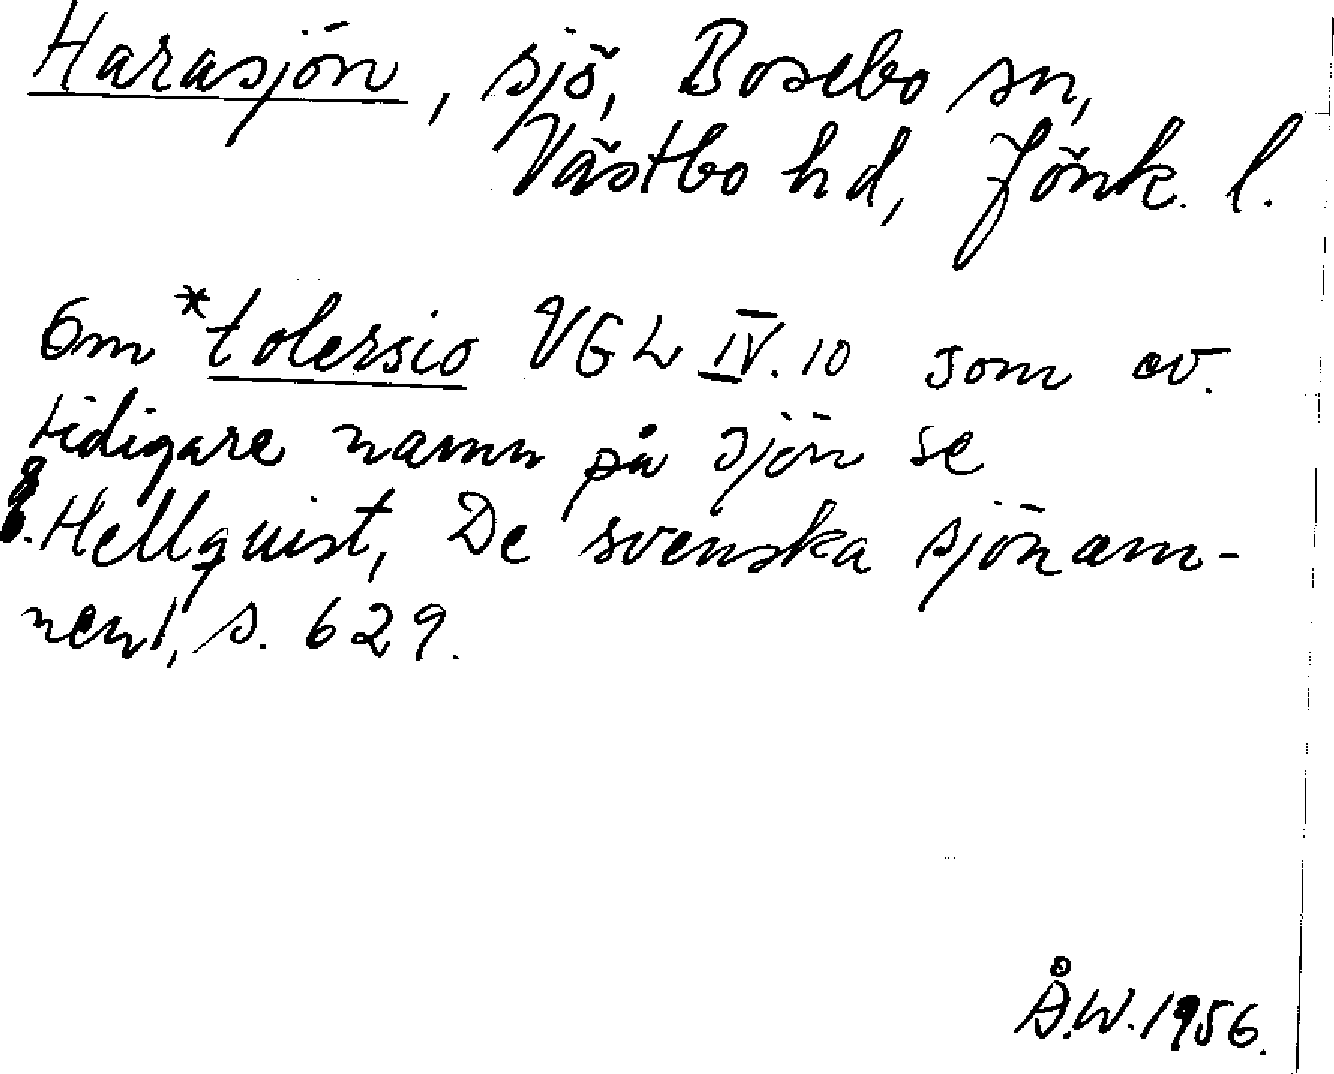 Harasjön, sjö, Bosebo sn,
Västbo hd, Jönk. l.
Om *tolersio VGL IV. 10 som ev.
tidigare namn på sjön se
E. Hellquist, De svenska sjönam-
nen 1, s. 629.
Å.W. 1956.